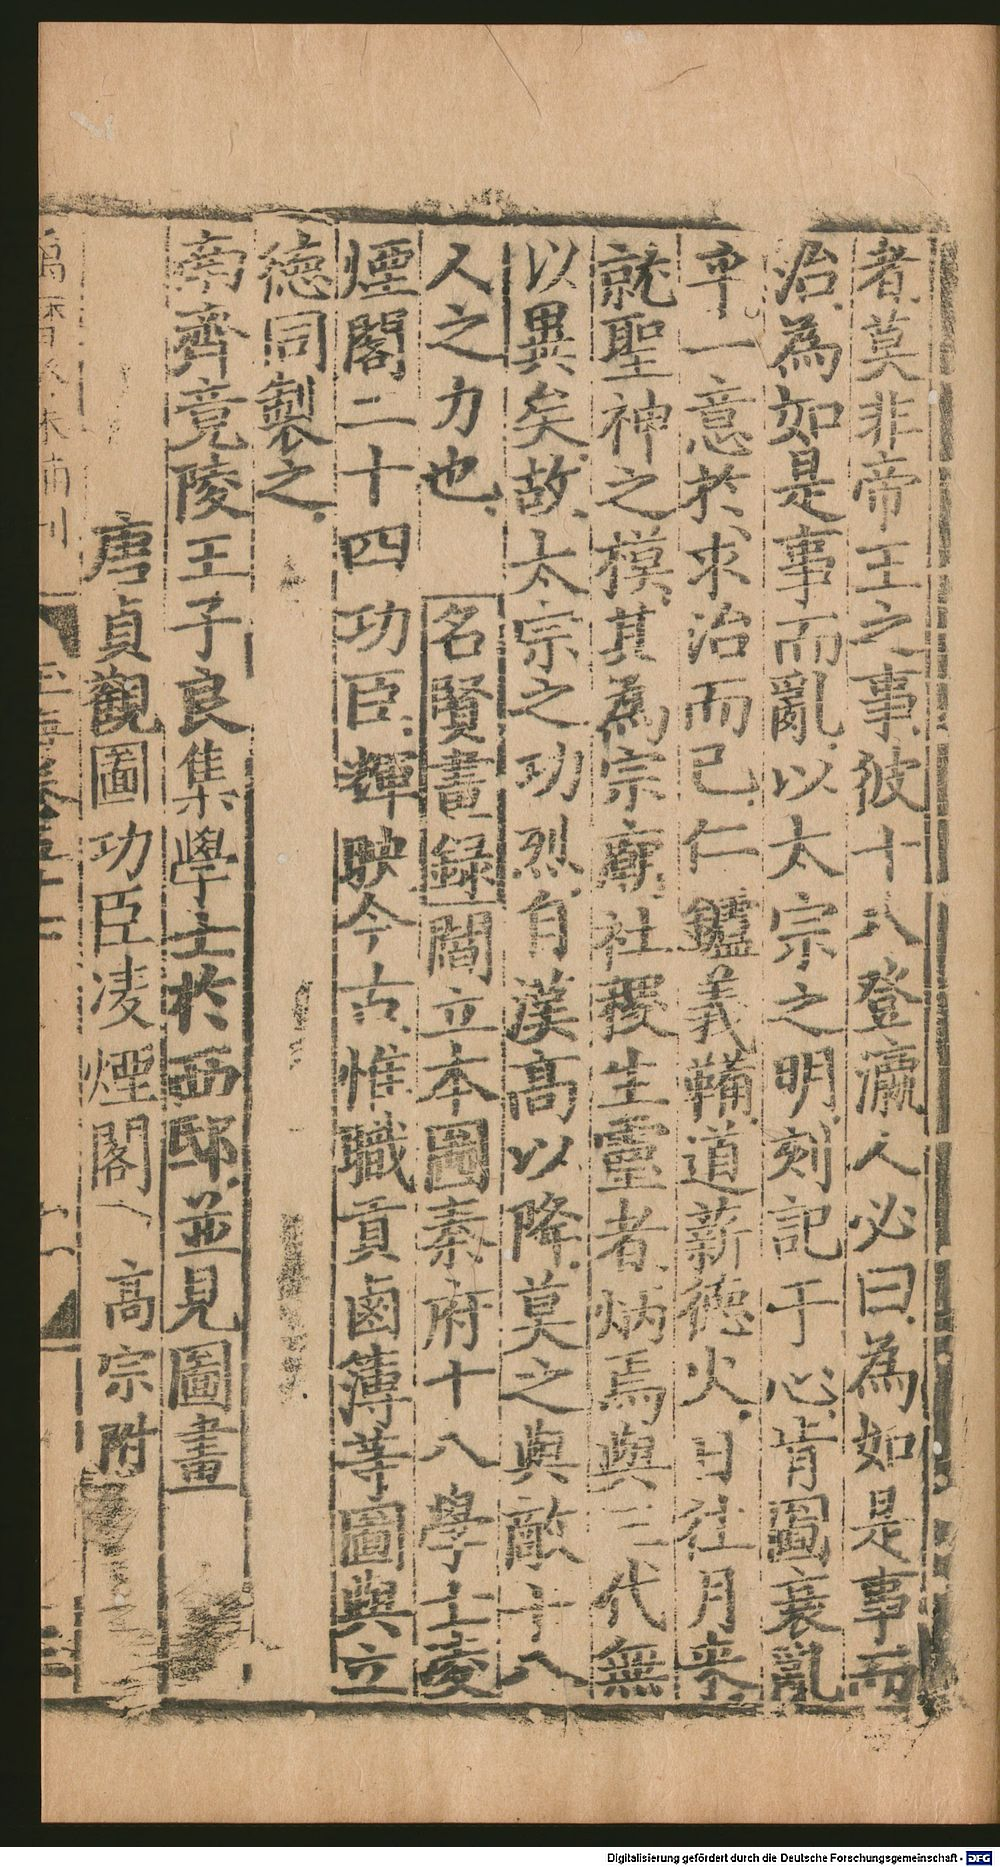 者莫非帝王之事彼十八登瀛人必曰為如是事而
治為如是事而亂以太宗之明刻記于心肯圖衰亂
乎一意於求治而已仁鑪義鞴道薪德火日往月來
就聖神之模其為宗廟社稷生靈者炳焉與三代無
以異矣故太宗之功烈自漢高以降莫之與敵十八
人之力也 名賢畫録閻立本圖秦府十八學士凌
煙閣二十四功臣輝映今古惟職貢鹵簿等圖與立
德同製之
南齊竟陵王子良集學士於西邸並見圖畫
唐貞觀圖功臣凌煙閣 高宗附
Digitalisierung gefördert durch die Deutsche Forschungsgemeinschaft - DFG